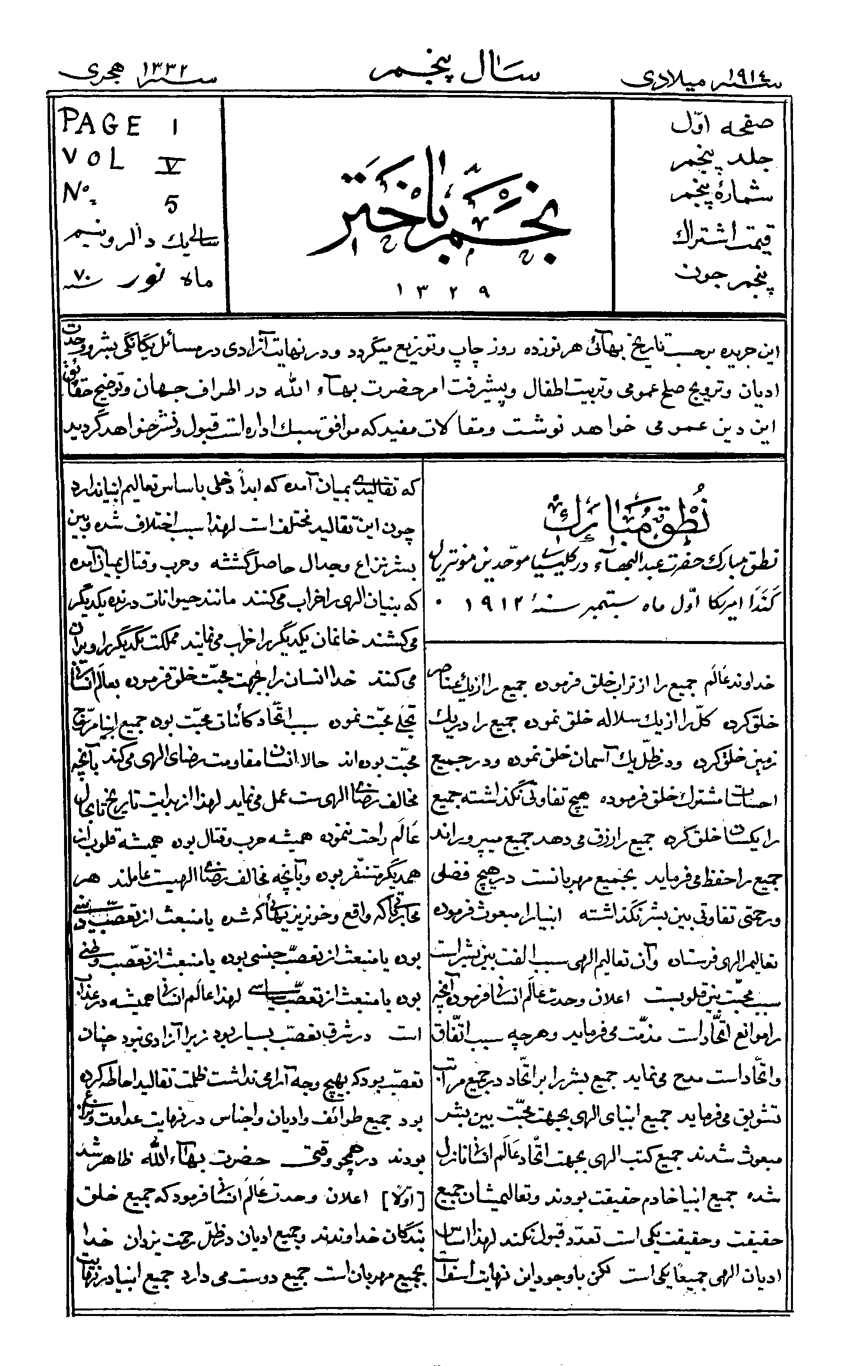 سنه ۱۹۱٤ میلادی
سال پنجم
سنه ۱۳۳۲ هجری
صفحه اوّل
جلد پنجم
شمارهٔ پنجم
قیمت اشتراك
پنجم جون
نجم باختر
۱۳۲۹
PAGE 1
VOL V
No. 5
سالی یك دالر و نیم
ماه نور سنه ۷۰
این جریده برحسب تاریخ بهائی هر نوزده روز چاپ و توزیع میگردد و در نهایت آزادی در مسائل یگانگی بشر و وحدت
ادیان و ترویج صلح عمومی و تربیت اطفال و پیشرفت امر حضرت بهآء الله در اطراف جهان و توضیح حقائق
این دین عمومی خواهد نوشت و مقالات مفید که موافق سبك اداره است قبول و نشر خواهد گردید
نُطق مبارك
نطق مبارك حضرت عبدالبهآء در کلیسیا موحّدین مونتریال
کَنَدَا امریکا اوّل ماه سپتمبر سنهٔ ۱۹۱۲ ۰
خداوند عالم جمیع را از تراب خلق فرموده جمیع را از یك عناصر
خلق کرده کلّ را از یك سلاله خلق نموده جمیع را در یك
زمین خلق کرده و در ظلّ یك آسمان خلق نموده و در جمیع
احساسات مشترك خلق فرموده هیچ تفاوتی نگذاشته جمیع
را یکسان خلق کرده جمیع را رزق می دهد جمیع میپروراند
جمیع را حفظ می فرماید بجمیع مهربانست در هیچ فضلی
و رحمتی تفاوتی بین بشر نگذاشته انبیا را مبعوث فرموده
تعالیم الهی فرستاده و آن تعالیم الهی سبب الفت بین بشر است
سبب محبّت بین قلوبست اعلان وحدت عالم انسانی فرموده آنچه
را موانع اتّحاد است مذمّت می فرماید و هرچه سبب اتّفاق
و اتّحاد است مدح می نماید جمیع بشر را بر اتّحاد در جمیع مراتب
تشویق می فرماید جمیع انبیای الهی بجهت محبّت بین بشر
مبعوث شدند جمیع کتب الهی بجهت اتّحاد عالم انسانی نازل
شده جمیع انبیا خادم حقیقت بودند و تعالیمشان جمیع
حقیقت و حقیقت یکی است تعدّد قبول نکند لهذا اساس
ادیان الهی جمیعًا یکی است لکن با وجود این نهایت اسف است
که تقالیدی بمیان آمده که ابداً دخلی باساس تعالیم انبیا ندارد
چون این تقالید مختلف است لهذا سبب اختلاف شده و بین
بشر نزاع و جدال حاصل گشته و حرب و قتال بمیان آمده
که بنیان الهی را خراب می کنند مانند حیوانات درنده یکدیگر
میکشند خانمان یکدیگر را خراب می نمایند مملکت یکدیگر را ویران
می کنند خدا انسان را بجهت محبّت خلق فرموده بعالم انسانی
تجلّی محبّت نموده سبب اتّحاد کائنات محبّت بوده جمیع انبیا مروّج
محبّت بوده اند حالا انسان مقاومت رضای الهی می کند بآنچه
مخالف رضای الهی ست عمل می نماید لهذا از بدایت تاریخ تا بحال
عالم راحت ننموده همیشه حرب و قتال بوده همیشه قلوب از
همدیگر متنفر بوده و بآنچه مخالف رضای الهیست عاملند هر
محارباتی که واقع و خونریزیهائی که شده یا منبعث از تعصّب دینی
بوده یا منبعث از تعصّب جنسی بوده یا منبعث از تعصّب وطنی
بوده یا منبعث از تعصّب سیاسی لهذا عالم انسانی همیشه در عذاب
است در شرق تعصّب بسیار بود زیرا آزادی نبود چنان
تعصّب بود که بهیچ وجه آرامی نداشت ظلمت تقالید احاطه کرده
بود جمیع طوائف و ادیان و اجناس در نهایت عداوت و نزاع
بودند در همچو وقتی حضرت بهآء الله ظاهر شد
[اوّلا] اعلان وحدت عالم انسانی فرمود که جمیع خلق
بندگان خداوندند و جمیع ادیان در ظلّ رحمت یزدان خدا
بجمیع مهربان است جمیع دوست می دارد جمیع انبیا در نهایت